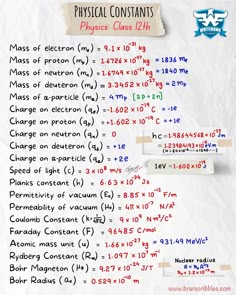 PHYSICAL CONSTANTS
Physics Class 12th
Mass of electron (me) = 9.1 x 10⁻³¹ kg
Mass of proton (mp) = 1.6726 x 10⁻²⁷ kg = 1836 me
Mass of neutron (mn) = 1.6749 x 10⁻²⁷ kg = 1840 me
Mass of deuteron (md) = 3.3452 x 10⁻²⁷ kg = 2 mp
Mass of α-particle (mα) = 4 mp [2p + 2n]
Charge on electron (qe) = -1.602 x 10⁻¹⁹ C = -1e
Charge on proton (qp) = +1.602 x 10⁻¹⁹ C = +1e
Charge on neutron (qn) = 0
Charge on deuteron (qd) = +1e
Charge on α-particle (qα) = +2e
hc = 1.98644568 x 10⁻²⁵ Jm
1eV = 1.602 x 10⁻¹⁹ J
Speed of light (c) = 3 x 10⁸ m/s
Planks constant (h) = 6.63 x 10⁻³⁴ Js
Permittivity of vacuum (ε₀) = 8.85 x 10⁻¹² F/m
Permeability of vacuum (μ₀) = 4π x 10⁻⁷ N/A²
Coulomb Constant = 9 x 10⁹ N m²/C²
Faraday Constant (F) = 96485 C/mol
Atomic mass unit (u) = 1.66 x 10⁻²⁷ kg = 931.49 MeV/c²
Rydberg Constant (R∞) = 1.097 x 10⁷ m⁻¹
Bohr Magneton (μB) = 9.27 x 10⁻²⁴ J/T
Bohr Radius (a₀) = 0.529 x 10⁻¹⁰ m
Nuclear radius
www.brarscribbles.com